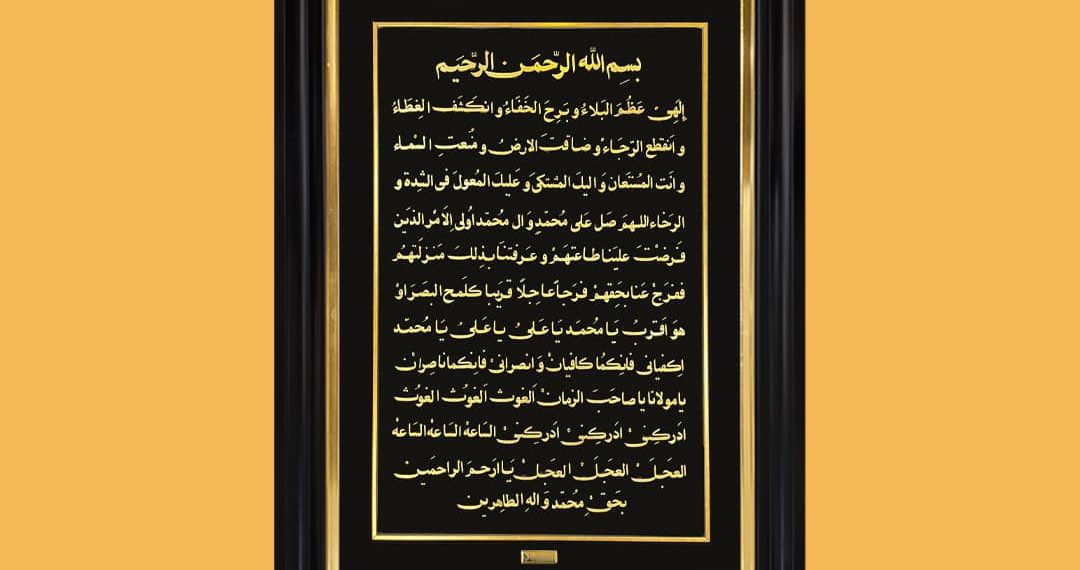 بِسمِ اللّٰه الرّحمَن الرّحيَم
اِلٰهِىْ عَظُمَ البَلاءُ و بَرِحَ الخَفَاءُ و انكَشَفَ الغِطَاءُ
و اَنقطع الرّجَاءُ و ضاقَت الارضُ و مُنعتِ السّماء
و اَنت المُستَعان وَ اليكَ المشتكىَ و عَليكَ المُعولَ فى الشِدة و
الرخاء اللهمَ صَل عَلى مُحمّدٍ وَ ال محمّد اُولى الامْر الذيَن
فَرضْتَ عليَنا طاعتهَمْ و عرفتنَا بذِلكَ مَنزلَتهُم
ففرجْ عَنا بحَقِهمْ فرَجاً عاجِلًا قرَيبا كلَمح البصَر اوْ
هوَ اَقربُ يَا مُحمَد يَا عَلىُ يا عَلىُ يَا مُحمّد
اِكفيانى فانِكمُا كافيانْ وَ انصرانىْ فانكما ناصِرانْ
يا مولانا يا صاحَبَ الزمانْ اَلغوث اَلغوُث الغوُث
ادَركِنىْ ادَركِنىْ ادَركِنىْ السَاعهْ الساعهْ السَاعهْ
العجَلَ العجَلَ العجَلْ يَا ارَحمَ الراحمَين
بحَقِ مُحمّد وَ الهِ الطاهرين